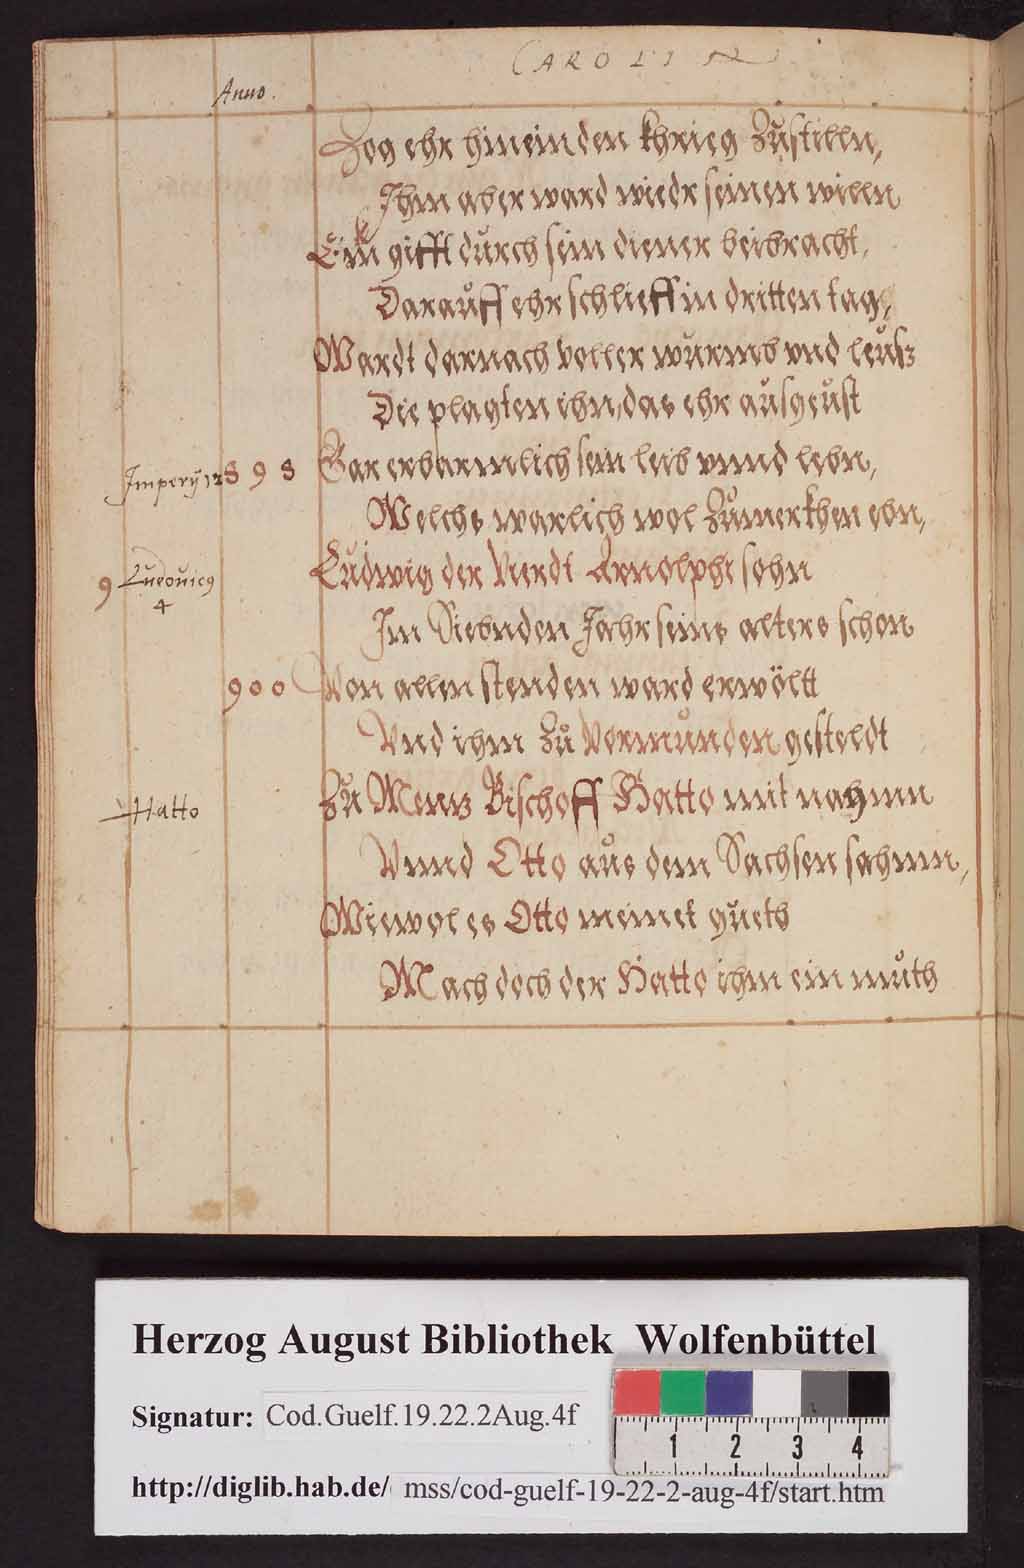 CAROLIN
Anno.
Zog ehr hinein den khrieg Zůstilln,
Ihm aber ward wiedr seinen willn
Ein gifft důrch sein diener beibracht,
Daraůff ehr schlieff in dritten tag,
Wardt darnach voller würmb vnd leůß
Die plagten ihn, das ehr aůsgeůst
Imperij 12 898 Gar erbarmlich sein leib vnnd lebn,
Welchs warlich wol Zůmerkhen ebn,
9 Ludouicg Lůdwig der Vierdt Arnolphi sohn
4
Im Siebnden Jahr seins alters schon
900 Von allen stenden ward erwöltt
Vnd ihm Zů Vormůnden gesteldt
Hatto Zů Menz Bischoff Hatto mit nahmn
Vnnd Otto aůs dem Sachsen sahmn,
Wiewol es Otto meinet gůets
Mach doch der Hatto ihm ein můth
Herzog August Bibliothek Wolfenbüttel
Signatur: Cod.Guelf.19.22.2Aug.4f
1 2 3 4
http://diglib.hab.de/ mss/cod-guelf-19-22-2-aug-4f/start.htm